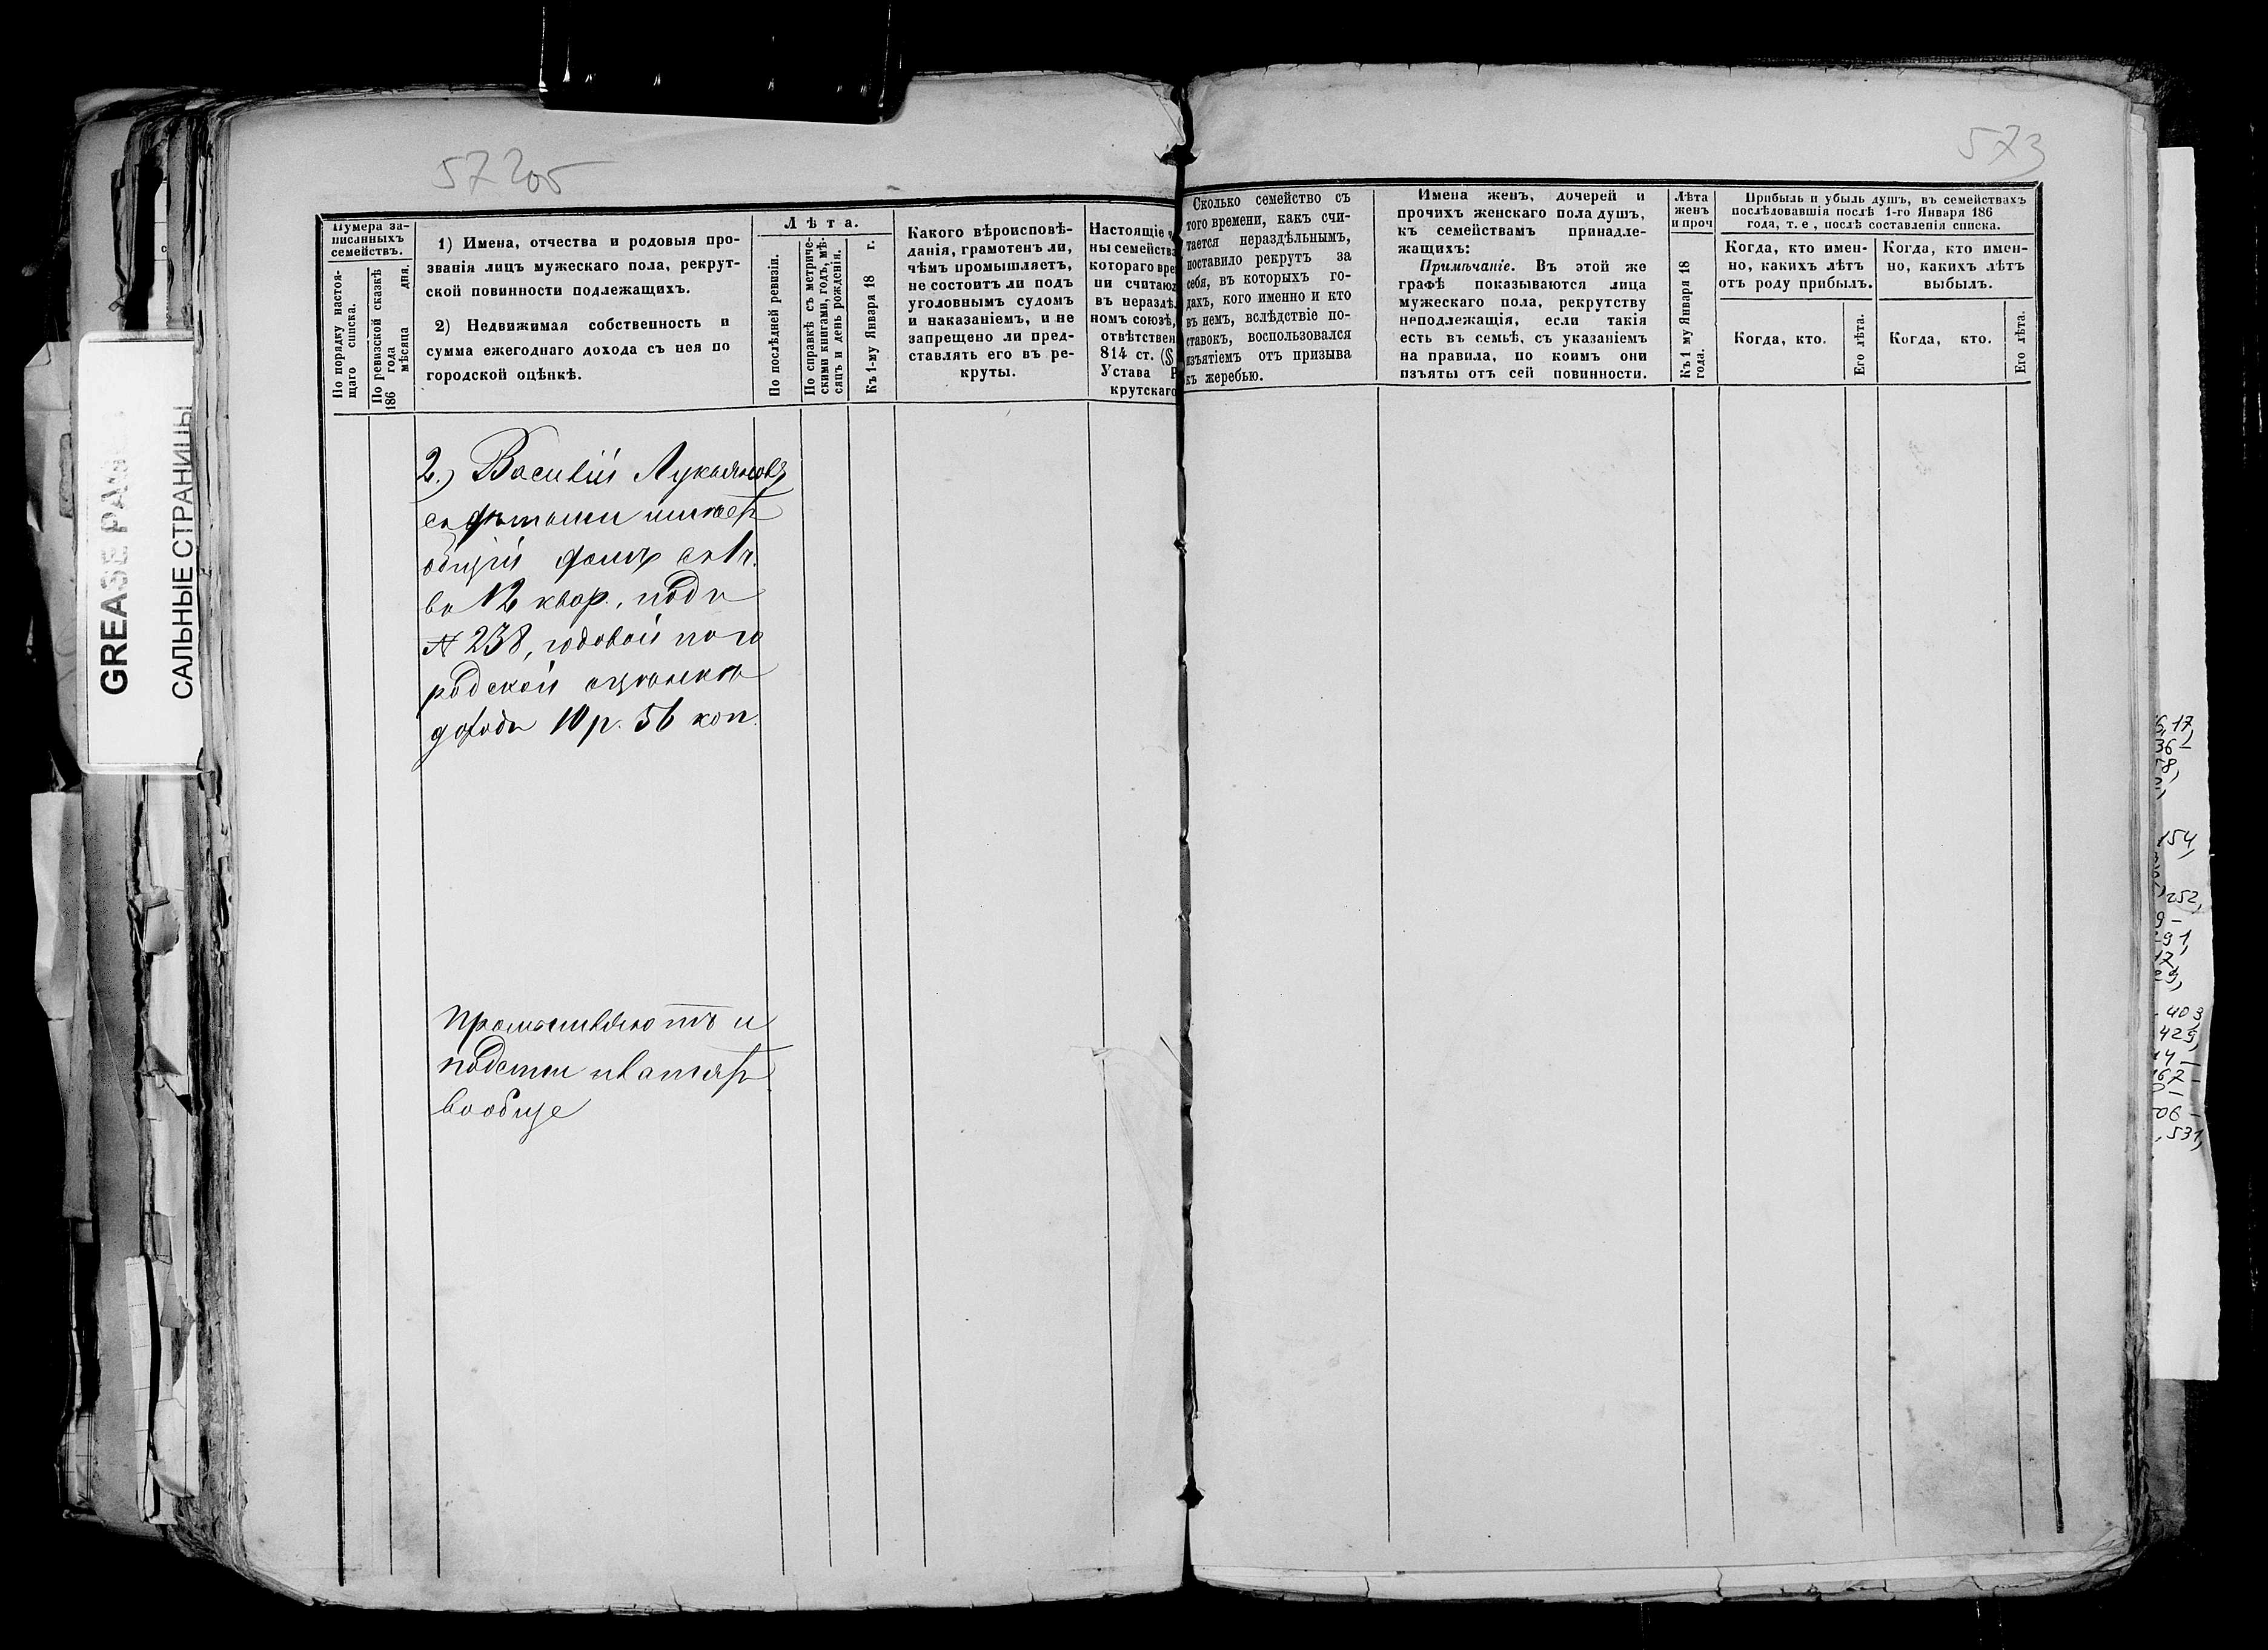 572об
573
GREASE PAGES
САЛЬНЫЕ СТРАНИЦЫ
Нумера за-
писанныхъ
семействъ.
По порядку настоя-
щаго списка.
По ревизской сказкѣ
186 года мѣсяца дня.
1) Имена, отчества и родовыя про-
званія лицъ мужескаго пола, рекрут-
ской повинности подлежащихъ.
2) Недвижимая собственность и
сумма ежегоднаго дохода съ нея по
городской оцѣнкѣ.
Лѣта.
По послѣдней ревизіи.
По справкѣ съ метриче-
скими книгами, годъ, мѣ-
сяцъ и день рожденія.
Къ 1-му Января 18 г.
Какого вѣроисповѣ-
данія, грамотенъ ли,
чѣмъ промышляетъ,
не состоитъ ли подъ
уголовнымъ судомъ
и наказаніемъ, и не
запрещено ли пред-
ставлять его въ ре-
круты.
Настоящіе ч
ны семейства
котораго вре
ни считаю
въ нераздѣ
номъ союзѣ,
отвѣтствен
814 ст. (§
Устава Р
крутскаго
Сколько семейство съ
того времени, какъ счи-
тается нераздѣльнымъ,
поставило рекрутъ за
себя, въ которыхъ го-
дахъ, кого именно и кто
въ немъ, вслѣдствіе по-
ставокъ, воспользовался
изъятіемъ отъ призыва
къ жеребью.
Имена женъ, дочерей и
прочихъ женскаго пола душъ,
къ семействамъ принадле-
жащихъ:
Примѣчаніе. Въ этой же
графѣ показываются лица
мужескаго пола, рекрутству
неподлежащія, если такія
есть въ семьѣ, съ указаніемъ
на правила, по коимъ они
изъяты отъ сей повинности.
Лѣта
женъ
и проч
Къ 1 му Января 18
года.
Прибыль и убыль душъ, въ семействахъ
послѣдовавшія послѣ 1-го Января 186
года, т. е, послѣ составленія списка.
Когда, кто имен-
но, какихъ лѣтъ
отъ роду прибылъ.
Когда, кто имен-
но, какихъ лѣтъ
выбылъ.
Когда, кто.
Его лѣта.
Когда, кто.
Его лѣта.
2.) Василій Лукьяновъ
съ дѣтьми имѣетъ
общій домъ въ 1 ч.
въ 12 квар., подъ
№ 238, годовой по го
родской оцѣнкѣ
доходъ 10 р. 56 коп.
Промышляютъ и
подати платятъ
вообще
6,17,
36-
58,
154,
252,
9-
91,
17,
29,
403,
429,
14-
67-
06-
, 531,